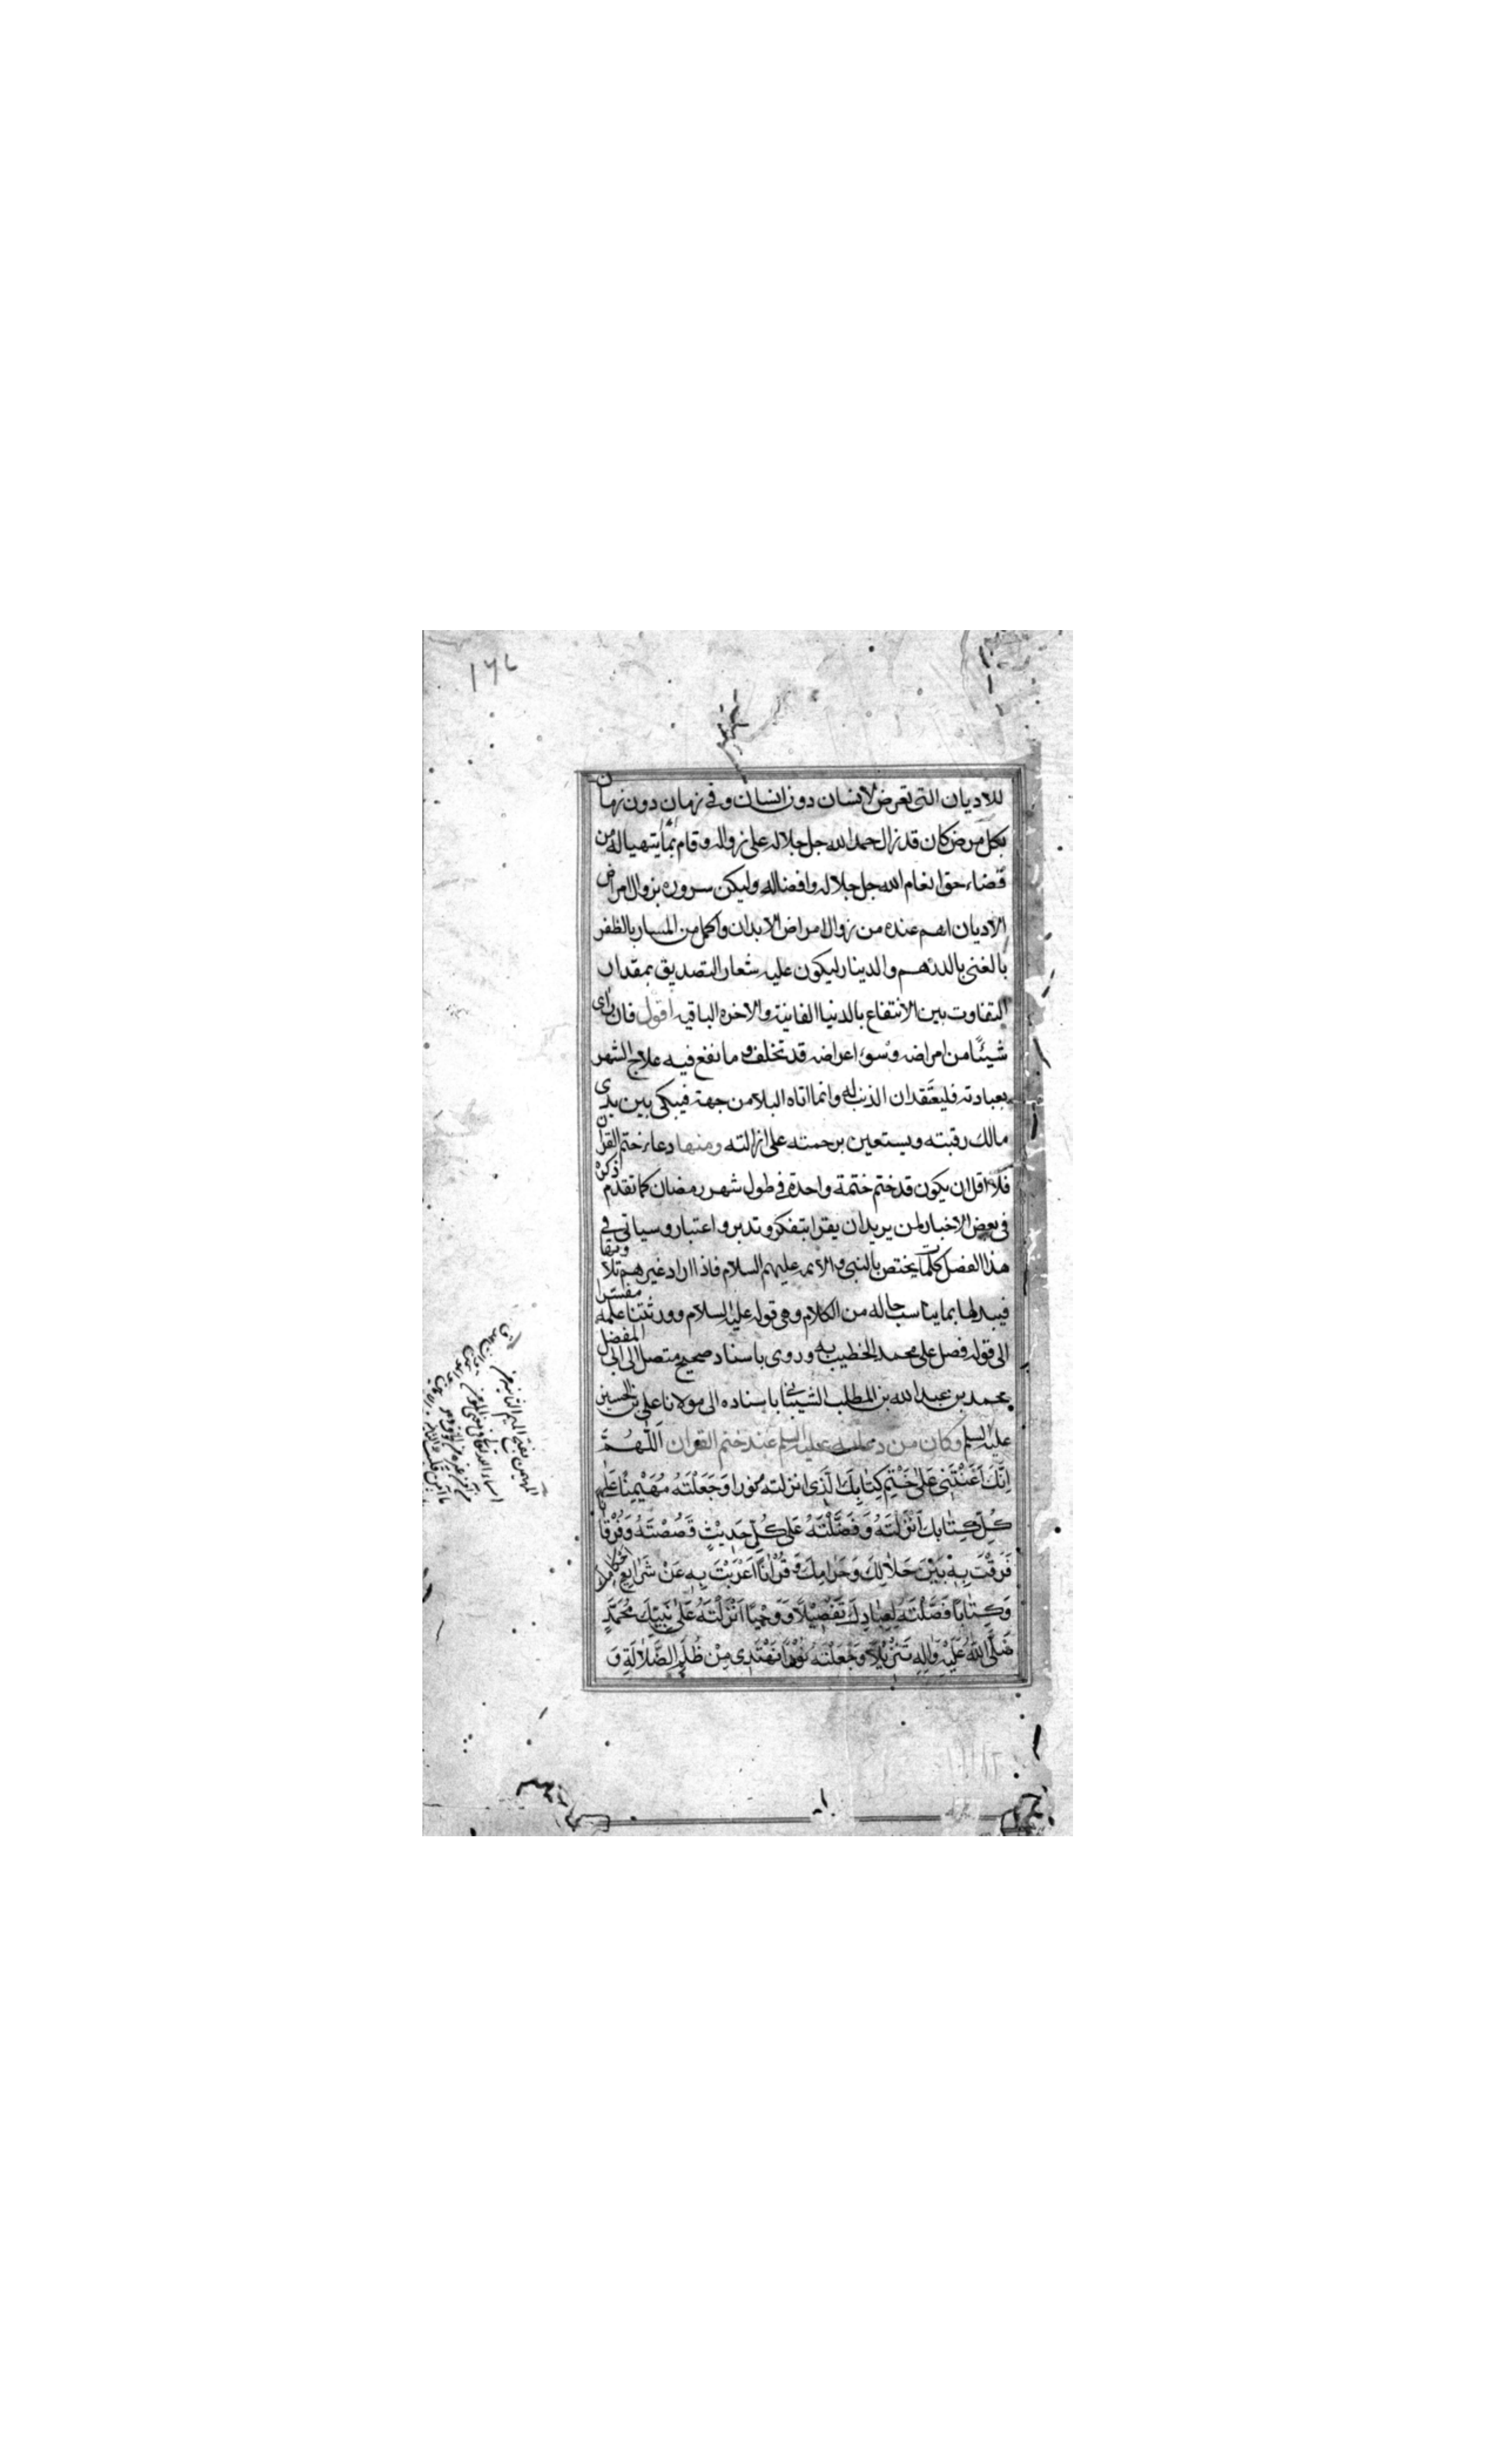 للاديان التى تعرض لانسان دون انسان وفى زمان دون زمان
بكل مرض كان قد زال حمد الله جل جلاله على زواله وقام بما يتهيا له من
قضاء حق انعام الله جل جلاله وافضاله وليكن سروره بزوال امراض
الاديان اهم عنده من زوال امراض الابدان واكمل من المسار بالظفر
بالغنى بالدرهم والدينار ليكون عليه شعار التصديق بمقدار
التفاوت بين الانتفاع بالدنيا الفانية والاخره الباقيه اقول فان راى
شيئًا من امراضه وسوء اعراضه قد تخلف وما نفع فيه علاج الشهر
بعبادته فليعتقد ان الذنب له وانما اتاه البلا من جهته فيبكى بين يدى
مالك رقبته ويستعين برحمته على ازالته ومنها دعاء ختم القران
فلا اقل ان يكون قد ختم ختمة واحدة فى طول شهر رمضان كما تقدم ذكره
فى بعض الاخبار لمن يريد ان يقرا بتفكر وتدبر واعتبار وسياتى فى
هذا الفصل كلمات يختص بالنبى والائمه عليهم السلام فاذا اراد غيرهم تلاوتها
فيبدلها بما يناسب حاله من الكلام وهى قوله عليه السلام وورثتنا علمه مفسّرا
الى قوله فصل على محمد الخطيب به وروى باسناد صحيح متصل الى ابى المفضل
محمد بن عبد الله بن المطلب الشيبانى باسناده الى مولانا على بن الحسين
عليه السلم وكان من دعائه عليه السلم عند ختم القران اَللّهُمَّ
اِنَّكَ اَعَنْتَنِى عَلى خَتْمِ كِتابِكَ الَّذى انزلته نورا وَجَعَلْتَهُ مُهَيْمِنًا عَلى
كُلِّ كِتابك اَنْزَلْتَهُ وَفَضَّلْتَهُ عَلى كُلِّ حَديْثٍ قَصَصْتَهُ وَفُرْقانًا
فَرَقْتَ بِهِ بَيْنَ حَلالِكَ وَحَرامِكَ وَقُرْانًا اَعْرَبْتَ بِهِ عَنْ شَرايِعِ احكامك
وَكِتابًا فَصَّلْتَه لِعِبادِكَ تَفْصيْلًا وَوَحْيًا اَنْزَلْتَهُ عَلى نَبِيِّكَ مُحَمَّدٍ
صَلَّى اللهُ عَلَيْهِ وَالِهِ تَنْزيْلًا وَجَعَلْتَه نُوْرًا نَهْتَدى مِنْ ظُلَمِ الضَّلالَةِ وَ